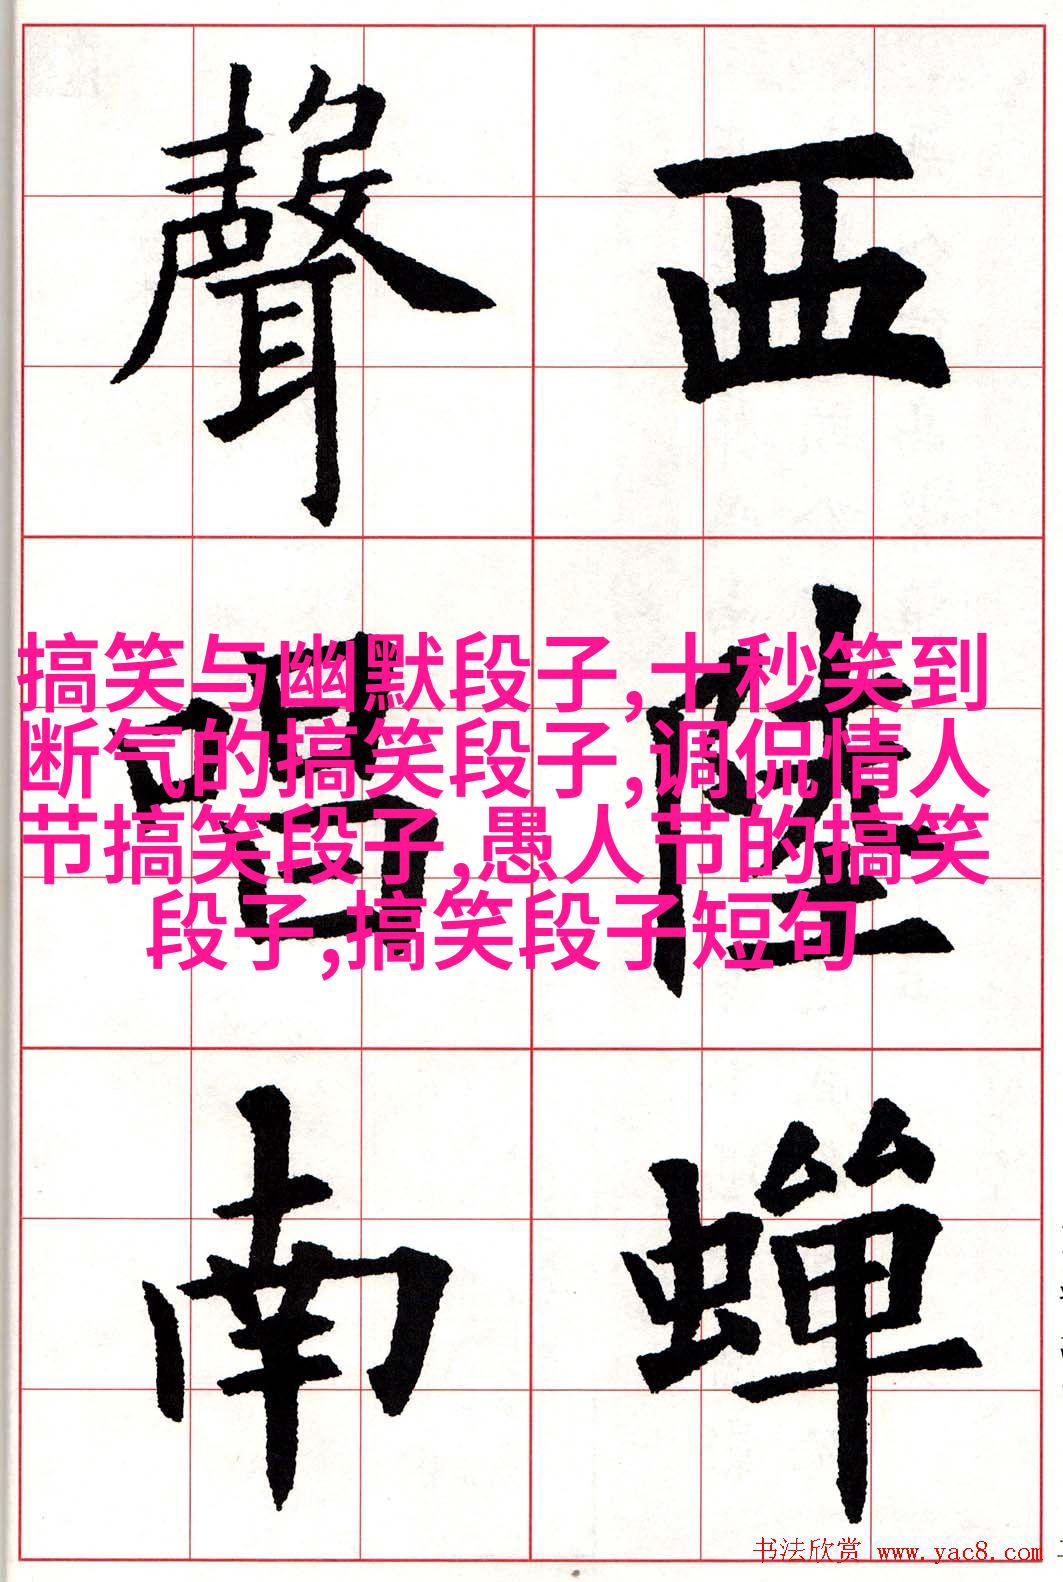 西陸蟬
聲唱南
搞笑与幽默段子,十秒笑到
断气的搞笑段子,调侃情人
节搞笑段子,愚人节的搞笑
段子,搞笑段子短句
书法欣赏 www.yac8.com